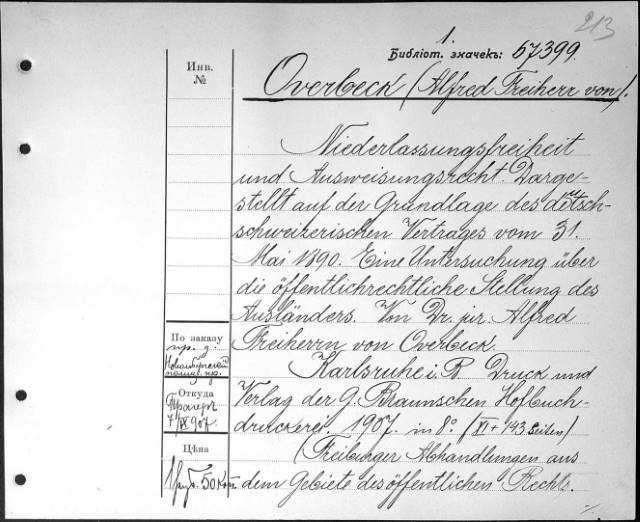 213
1.
Библіот. значекъ: 67399.
Инв.
№
Overbeck (Alfred Freiherr von).
Niederlassungsfreiheit
und Ausweisungsrecht. Darge-
stellt auf der Grundlage des detsch-
schweizerischen Vertrages vom 31.
Mai 1890. Eine Untersuchung über
die öffentlichrechtliche Stellung des
Ausländers. Von Dr. jur. Alfred
Freiherrn von Overbeck.
Karlsruhe i. B. Druck und
Verlag der G. Braunschen Hofbuch-
druckerei. 1907. in 8° (XI + 143 Seiten)
(Freiburger Abhandlungen aus
dem Gebiete des öffentlichen Rechts.
По заказу
пр. д.
Откуда
7/IX 907.
Цѣна
1 руб. 50 коп.